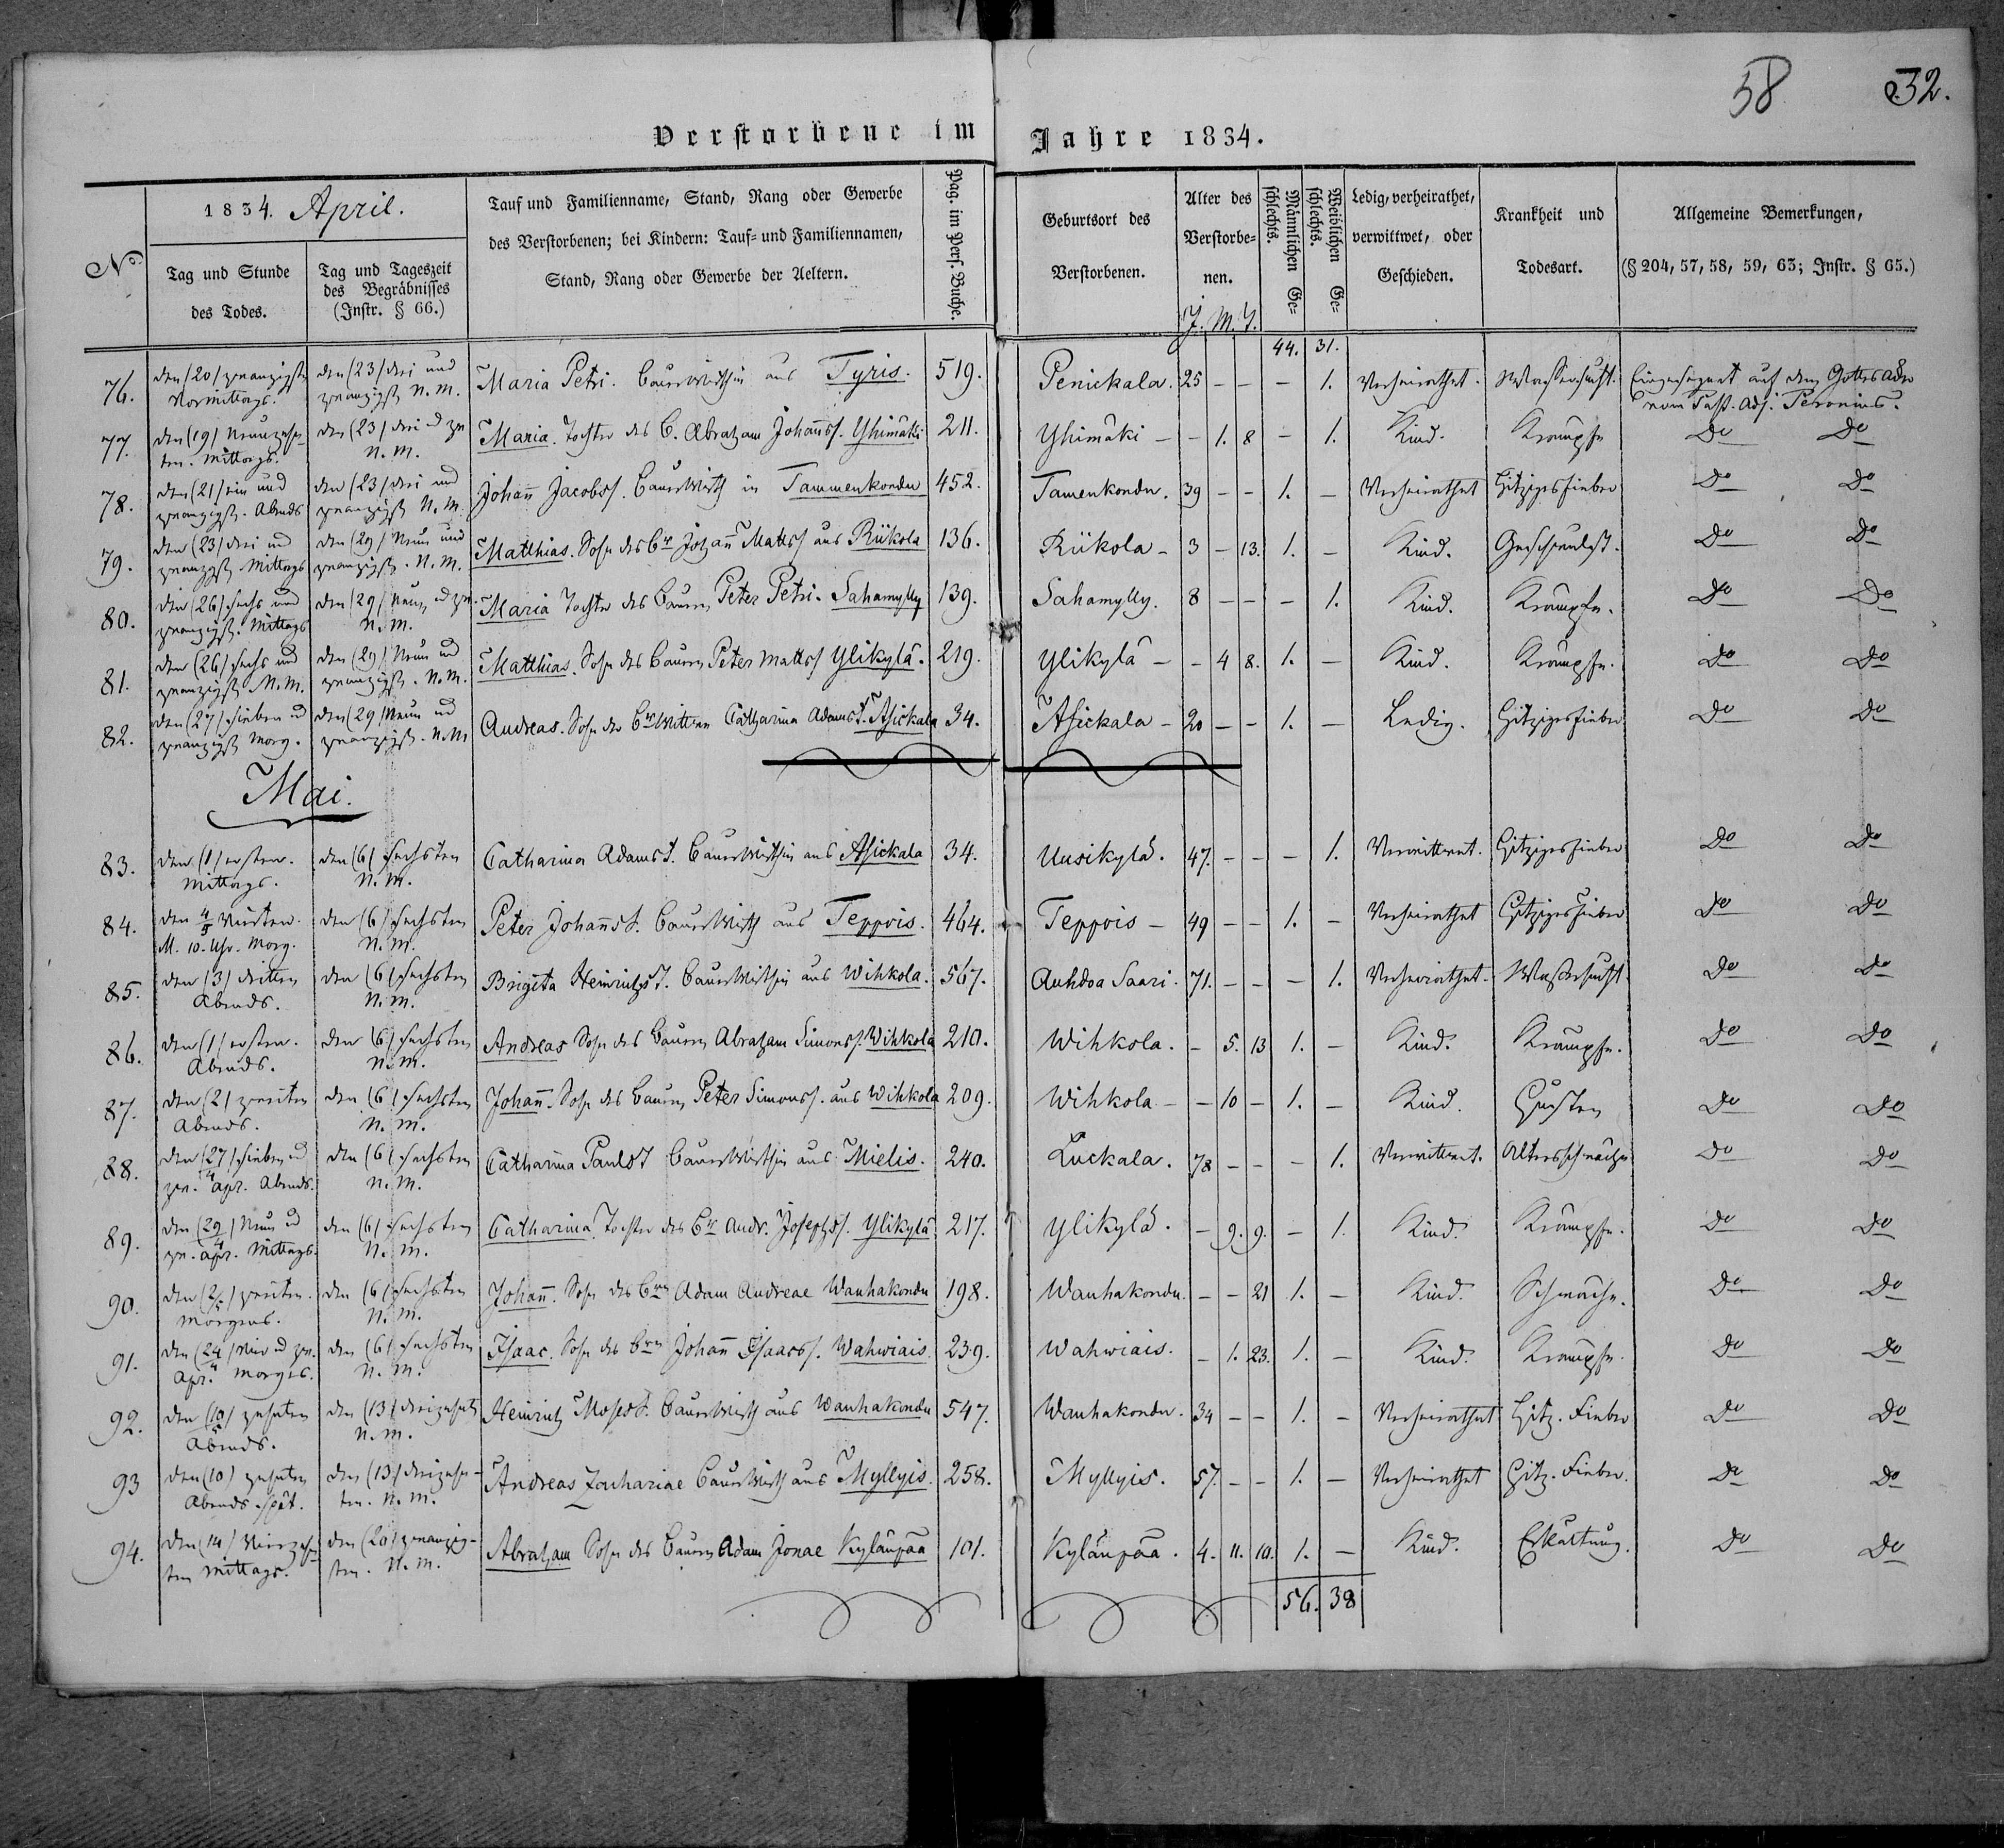 58 32.
Verstorbene im Jahre 1834.
No
1834. April.
Tag und Stunde des Todes.
Tag und Tageszeit des Begräbnisses (Instr. § 66.)
Tauf und Familienname, Stand, Rang oder Gewerbe
des Verstorbenen; bei Kindern: Tauf- und Familiennamen,
Stand, Rang oder Gewerbe der Aeltern.
Pag. im Pers. Buche.
Geburtsort des Verstorbenen.
Alter des Verstorbenen.
J. M. T.
Männlichen Geschlechts.
Weiblichen Geschlechts.
Ledig, verheirathet, verwittwet, oder Geschieden.
Krankheit und Todesart.
Allgemeine Bemerkungen,
(§ 204, 57, 58, 59, 63; Instr. § 65.)
44. 31.
76. den (20) zwanzigsten Vormittags. den (23) drei und zwanzigst. N. M. Maria Petri. Bauerwirthin aus Tyris. 519. Penickala. 25 – – – 1. Verheirathet. Wassersucht. Eingesegnet auf dem Gottesacker vom Past. Adj. Peronius.
77. den (19) Neunzehnten. Mittags. den (23) drei u zw N. M. Maria. Tochter des B. Abraham Johanss. Yhimäki 211. Yhimäki – – 1. 8 – 1. Kind. Krämpfe Do Do
78. den (21) ein und zwanzigst. Abends den (23) drei und zwanzigst N. M. Johan̄ Jacobss. Bauerwirth in Tammenkondu 452. Tamenkondu. 39 – – 1. – Verheirathet Hitzigesfieber Do Do
79. den (23) drei und zwanzigst Mittags den (29) Neun und zwanzigst. N. M. Matthias. Sohn des Br Johan̄ Mattss aus Riikola 136. Riikola – 3 – 13. 1. – Kind. Geschwulst. Do Do
80. den (26) sechs und zwanzigst. Mittags den (29) Neun u zw. N. M. Maria Tochter des Bauern Peter Petri. Sahamylly 139. Sahamylly. 8 – – – 1. Kind. Krämpfe. Do Do
81. den (26) sechs und zwanzigst. N. M. den (29) Neun ud zwanzigst. N. M. Matthias. Sohn des Bauern Peter Mattss Ylikylä. 219. Ylikylä – – 4 8. 1. – Kind. Krämpfe. Do Do
82. den (27) sieben ud zwanzigst Morg. den (29) Neun ud zwanzigst. N. M Andreas. Sohn der Br Wittwe Catharina Adamst. Asickala 34. Asickala – 20 – – 1. – Ledig. Hitzigesfieber Do Do
Mai.
83. den (1) ersten. Mittags. den (6) sechsten N. M. Catharina Adamst. Bauerwirthin aus Asickala 34. Uusikylä. 47. – – – 1. Verwittwet. Hitzigesfieber Do Do
84. den 4/5 Vierten. M. 10. Uhr. Morg. den (6) sechsten N. M. Peter Johan̄ss. Bauerwirth aus Teppois. 464. Teppois – 49 – – 1. – Verheirathet Hitzigesfieber Do Do
85. den (3) dritten Abends. den (6) sechsten N. M. Brigita Heinrichst. Bauerwirthin aus Wihkola. 567. Auhdoa Saari. 71. – – – 1. Verheirathet. Wassersucht. Do Do
86. den (1) ersten. Abends. den (6) sechsten N. M. Andreas Sohn des Bauern Abraham Simonss. Wihkola 210. Wihkola. – 5. 13 1. – Kind. Krämpfe. Do Do
87. den (2) zweiten Abends. den (6) sechsten N. M. Johan̄. Sohn des Bauern Peter Simonss. aus Wihkola 209. Wihkola – – 10 – 1. – Kind. Husten Do Do
88. den (27) sieben ud zw. Apr. Abends. den (6) sechsten N. M. Catharina Paulst Bauerwirthin aus Mielis. 240. Luckala. 78 – – – 1. Verwittwet. Altersschwäche Do Do
89. den (29) Neun ud zw. Apr. Mittags. den (6) sechsten N. M. Catharina. Tochter des Br Andr. Josephss. Ylikylä 217. Ylikylä. – 9. 9. – 1. Kind. Krämpfe. Do Do
90. den (2/5) zweiten. Morgens. den (6) sechsten N. M. Johan̄. Sohn des Brn Adam Andreae Wanhakondu 198. Wanhakondu. – – 21 1. – Kind. Schwäche. Do Do
91. den (24) Vier ud zw. Apr. Morgs. den (6) sechsten N. M. Isaac. Sohn des Brn Johan̄ Isaacss. Wahwiais. 239. Wahwiais. – 1. 23. 1. – Kind. Krämpfe. Do Do
92. den (10) zehnten Abends. den (13) dreizehnt N. M. Heinrich Mosess. Bauerwirth aus Wanhakondu 547. Wanhakondu. 34 – – 1. – Verheirathet Hitz. Fieber Do Do
93 den (10) zehnten Abends spät. den (13) dreizehnten. N. M. Andreas Zachariae Bauerwirth aus Myllyis. 258. Myllyis. 57. – – 1. – Verheirathet Hitz. Fieber. Do Do
94. den (14) Vierzehnten Mittags. den (20) zwanzigsten. N. M. Abraham Sohn des Bauern Adam Jonae Kylänpää 101. Kylänpää. 4. 11. 10. 1. – Kind. Erkältung. Do Do
56. 38